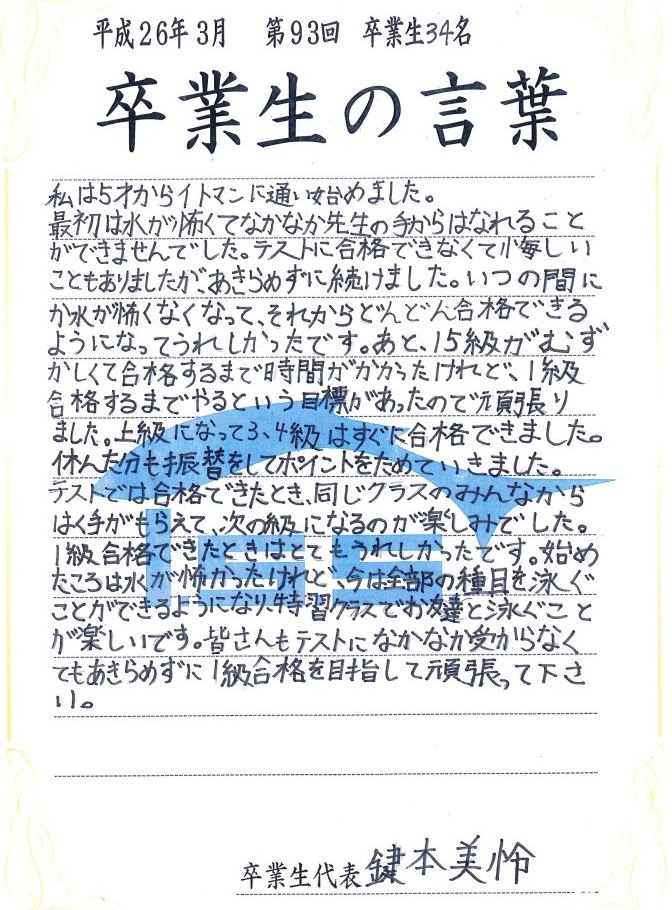 平成26年3月　第93回　卒業生34名
卒業生の言葉
私は5才からイトマンに通い始めました。
最初は水が怖くてなかなか先生の手からはなれること
ができませんでした。テストに合格できなくて悔しい
こともありましたが、あきらめずに続けました。いつの間に
か水が怖くなくなって、それからどんどん合格できる
ようになってうれしかったです。あと、15級がむず
かしくて合格するまで時間がかかったけれど、1級
合格するまでやるという目標があったので頑張り
ました。上級になって3、4級はすぐに合格できました。
休んだ分も振替をしてポイントをためていきました。
テストでは合格できたとき、同じクラスのみんなから
はく手がもらえて、次の級になるのが楽しみでした。
1級合格できたときはとてもうれしかったです。始め
たころは水が怖かったけれど、今は全部の種目を泳ぐ
ことができるようになり、特習クラスでお友達と泳ぐこと
が楽しいです。皆さんもテストになかなか受からなく
てもあきらめずに1級合格を目指して頑張って下さ
い。
iss
卒業生代表 鍵本美怜